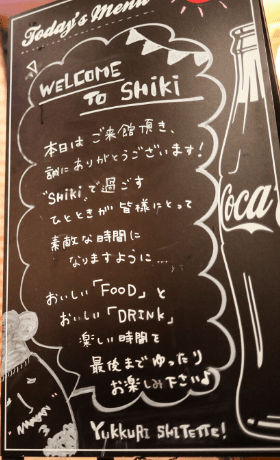 Today's Menu
WELCOME
TO SHIKI
本日は ご来館頂き、
誠にありがとうございます!
"SHiKi"で過ごす
ひとときが皆様にとって
素敵な時間に
なりますように…
おいしい「FOOD」と
おいしい「DRiNK」
楽しい時間を
最後までゆったり
お楽しみ下さい♪
YUKKURI SHITETTE!
Coca